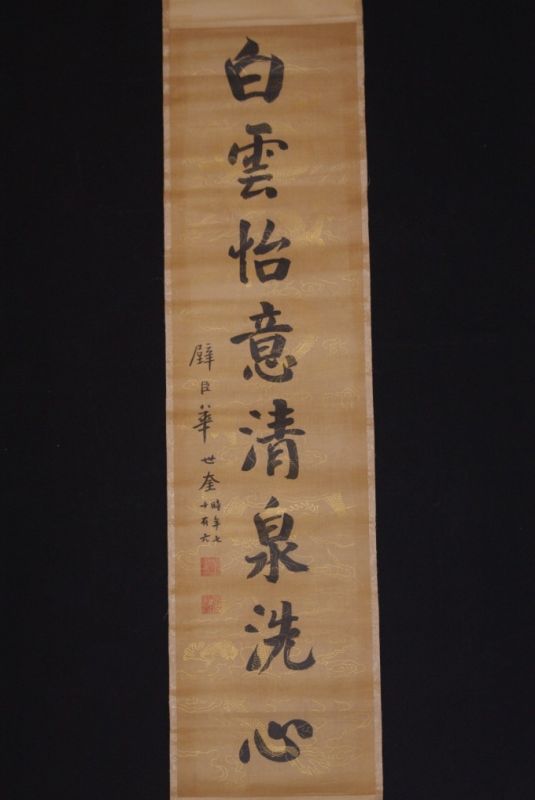 白雲怡意清泉洗心
壁臣華世奎
時年七
十有六